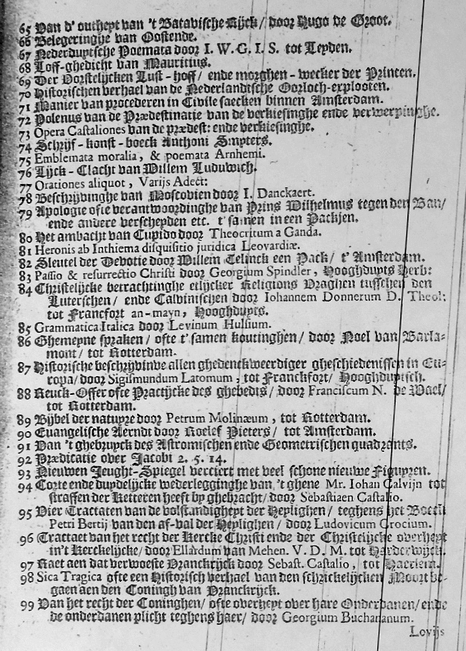 65 Van d' outheyt van 't Batavische Rijck / door Hugo de Groot.
66 Belegeringhe van Oostende.
67 Nederduytsche Poemata door I. W. G. I. S. tot Leyden.
68 Loff-ghedicht van Mauritius.
69 Der Vorstelijcken Lust-hoff / ende morghen-wecker der Princen.
70 Historischen verhael van de Nederlandtsche Oorloch-explooten.
71 Manier van procederen in Civile saecken binnen Amsterdam.
72 Polenus van de Prædestinatie van de verkiesinghe ende verwerpinghe.
73 Opera Castaliones van de prædest: ende verkiesinghe.
74 Schrijf-konst-boeck Anthoni Smyters.
75 Emblemata moralia, & poemata Arnhemi.
76 Lijck-Clacht van Willem Luduwich.
77 Orationes aliquot, Varijs Adect:
78 Beschrijvinghe van Moscovien door I. Danckaert.
79 Apologie ofte verantwoordinghe van Prins Wilhelmus tegen den Ban /
ende andere verscheyden etc. t' samen in een Packjen.
80 Het ambacht van Cupido door Theocritum a Ganda.
81 Heronis ab Inthiema disquisitio juridica Leovardiæ.
82 Sleutel der Devotie door Willem Telinck een Pack / t' Amsterdam.
83 Passio & resurrectio Christi door Georgium Spindler, Hooghduyts Herb:
84 Christelijcke betrachtinghe etlijcker Religions Draghen tusschen den
Luterschen / ende Calvinischen door Iohannem Donnerum D. Theol:
tot Francfort an-mayn, Hooghduyts.
85 Grammatica Italica door Levinum Hulsium.
86 Ghemeyne spraken / ofte t' samen koutinghen / door Noel van Barla-
mont / tot Rotterdam.
87 Historische beschrijvinge allen ghedenckweerdiger gheschiedenissen in Eu-
ropa / door Sigismundum Latomum, tot Franckfort / Hooghduytsch.
88 Reuck-Offer ofte Practijcke des ghebedts / door Franciscum N. de Wael /
tot Rotterdam.
89 Bijbel der natuyre door Petrum Molinæum, tot Rotterdam.
90 Euangelische Aerndt door Roelef Pieters / tot Amsterdam.
91 Van 't ghebruyck des Astromischen ende Geometrischen quadrants.
92 Prædicatie over Jacobi 2. 5. 14.
93 Nieuwen Jeught-Spiegel verciert met veel schone nieuwe Figuyren.
94 Corte ende duydelijcke wederlegginghe van 't ghene Mr. Iohan Calvijn tot
straffen der Ketteren heeft by ghebracht / door Sebastiaen Castalio.
95 Vier Tractaten van de volstandigheyt der Heylighen / teghens het Boeck
Petri Bertij van den af-val der Heylighen / door Ludovicum Crocium.
96 Tractaet van het recht der Kercke Christi ende der Christelijcke overheyt
in't Kerckelijcke / door Ellardum van Mehen. V. D. M. tot Harderwijck.
97 Raet aen dat verwoeste Vranckrijck door Sebast. Castalio, tot Haerlem.
98 Sica Tragica ofte een Historisch verhael van den schrickelijcken Moort be-
gaen aen den Coningh van Vranckrijck.
99 Van het recht der Coninghen / ofte overheyt over hare Onderdanen / ende
de onderdanen plicht teghens haer / door Georgium Buchananum.
Lovijs